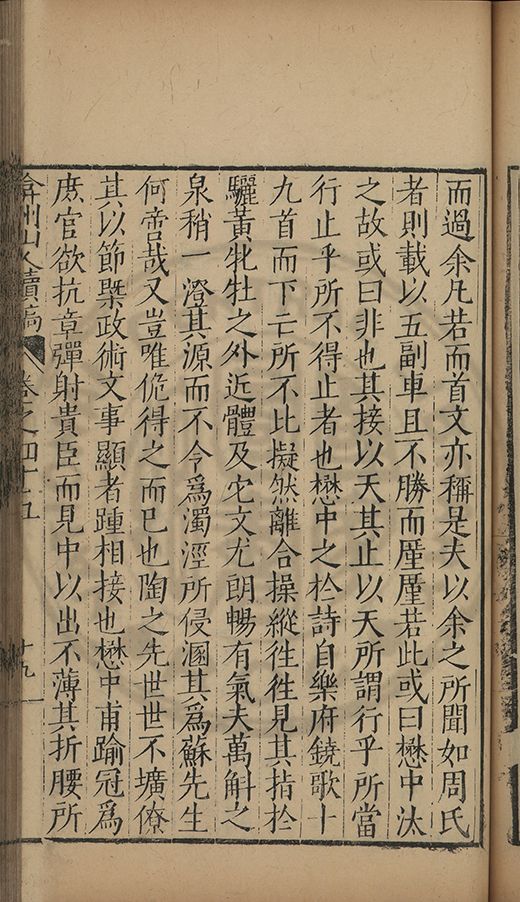 而過余凡若而首文亦稱是夫以余之所聞如周氏
者則載以五副車且不勝而厪厪若此或曰懋中汰
之故或曰非也其接以天其止以天所謂行乎所當
行止乎所不得止者也懋中之於詩自樂府鐃歌十
九首而下亡所不比擬然離合操縱徃徃見其指於
驪黃牝牡之外近體及它文尤朗暢有氣夫萬斛之
泉稍一澄其源而不令爲濁涇所侵溷其爲蘇先生
何啻哉又豈唯佹得之而巳也陶之先世世不擴僚
其以節槩政術文事顯者踵相接也懋中甫踰冠爲
庶官欲抗章彈射貴臣而見中以出不薄其折腰所
弇州山人續稿 卷之四十五 十九